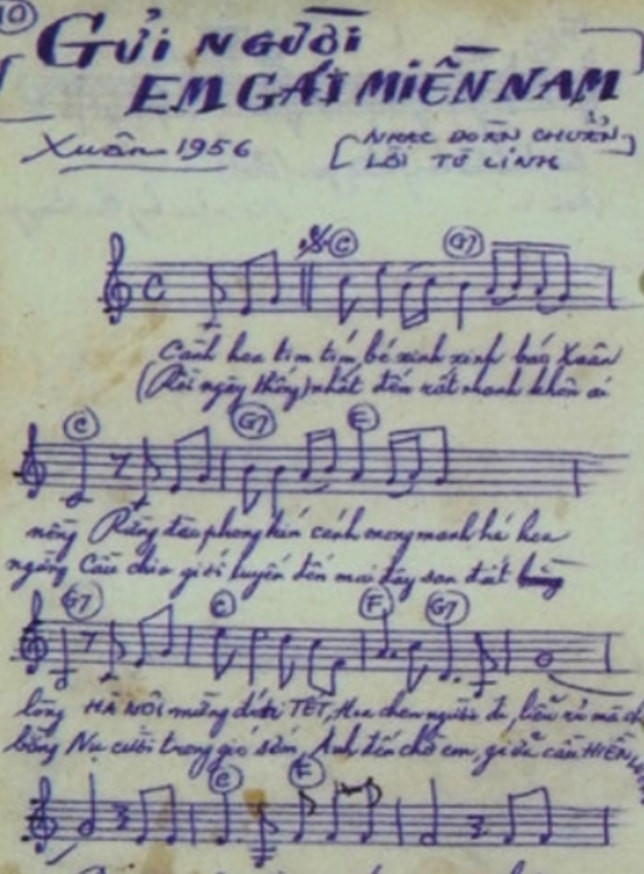 10
GỬI NGƯỜI
EM GÁI MIỀN NAM
Xuân 1956
[NHẠC ĐOÀN CHUẨN]
LỜI TỪ LINH
C G7
C
Cành hoa tim tím bé xinh xinh báo Xuân
(Rồi ngày thống) nhất đến rất nhanh không ai
C G7 E
nồng Rừng đào phong kín cánh mong manh hé hoa
ngăng Cầu chia giới tuyến đến mai đây san đất
G7 C F G7
lòng HÀ NỘI mừng đón TẾT, Hoa chen người đi, liễu rủ mà
bằng Nụ cười trong gió sớm, Anh đến chờ em, giữa cầu HIỀN
C F